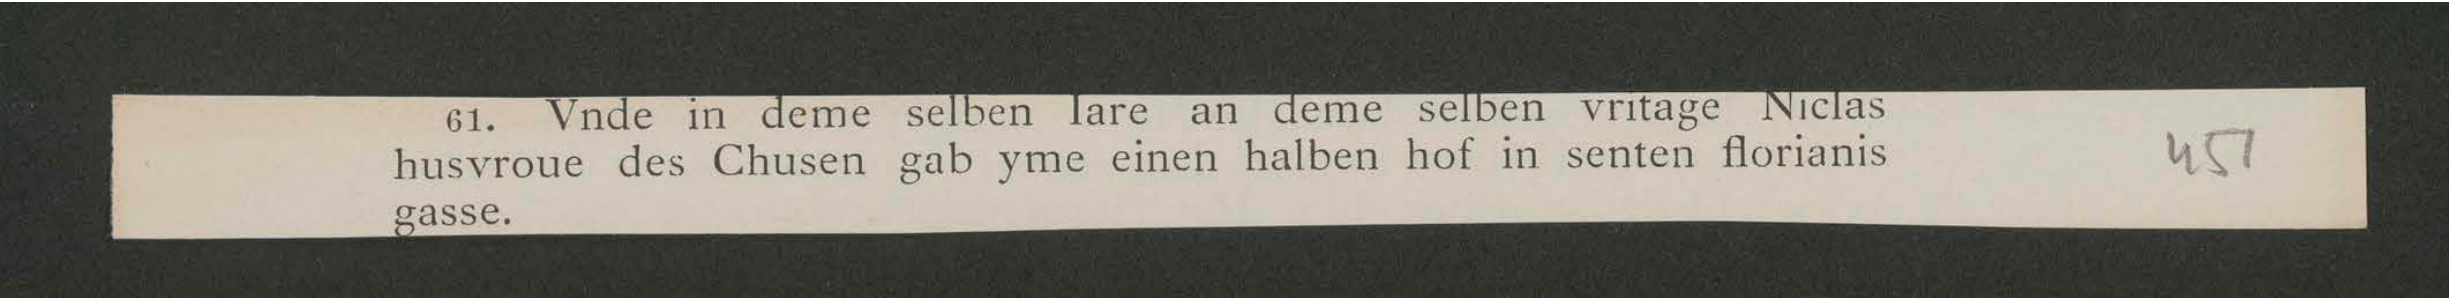 61. Vnde in deme selben Iare an deme selben vritage Niclas
husvroue des Chusen gab yme einen halben hof in senten florianis
gasse.
451